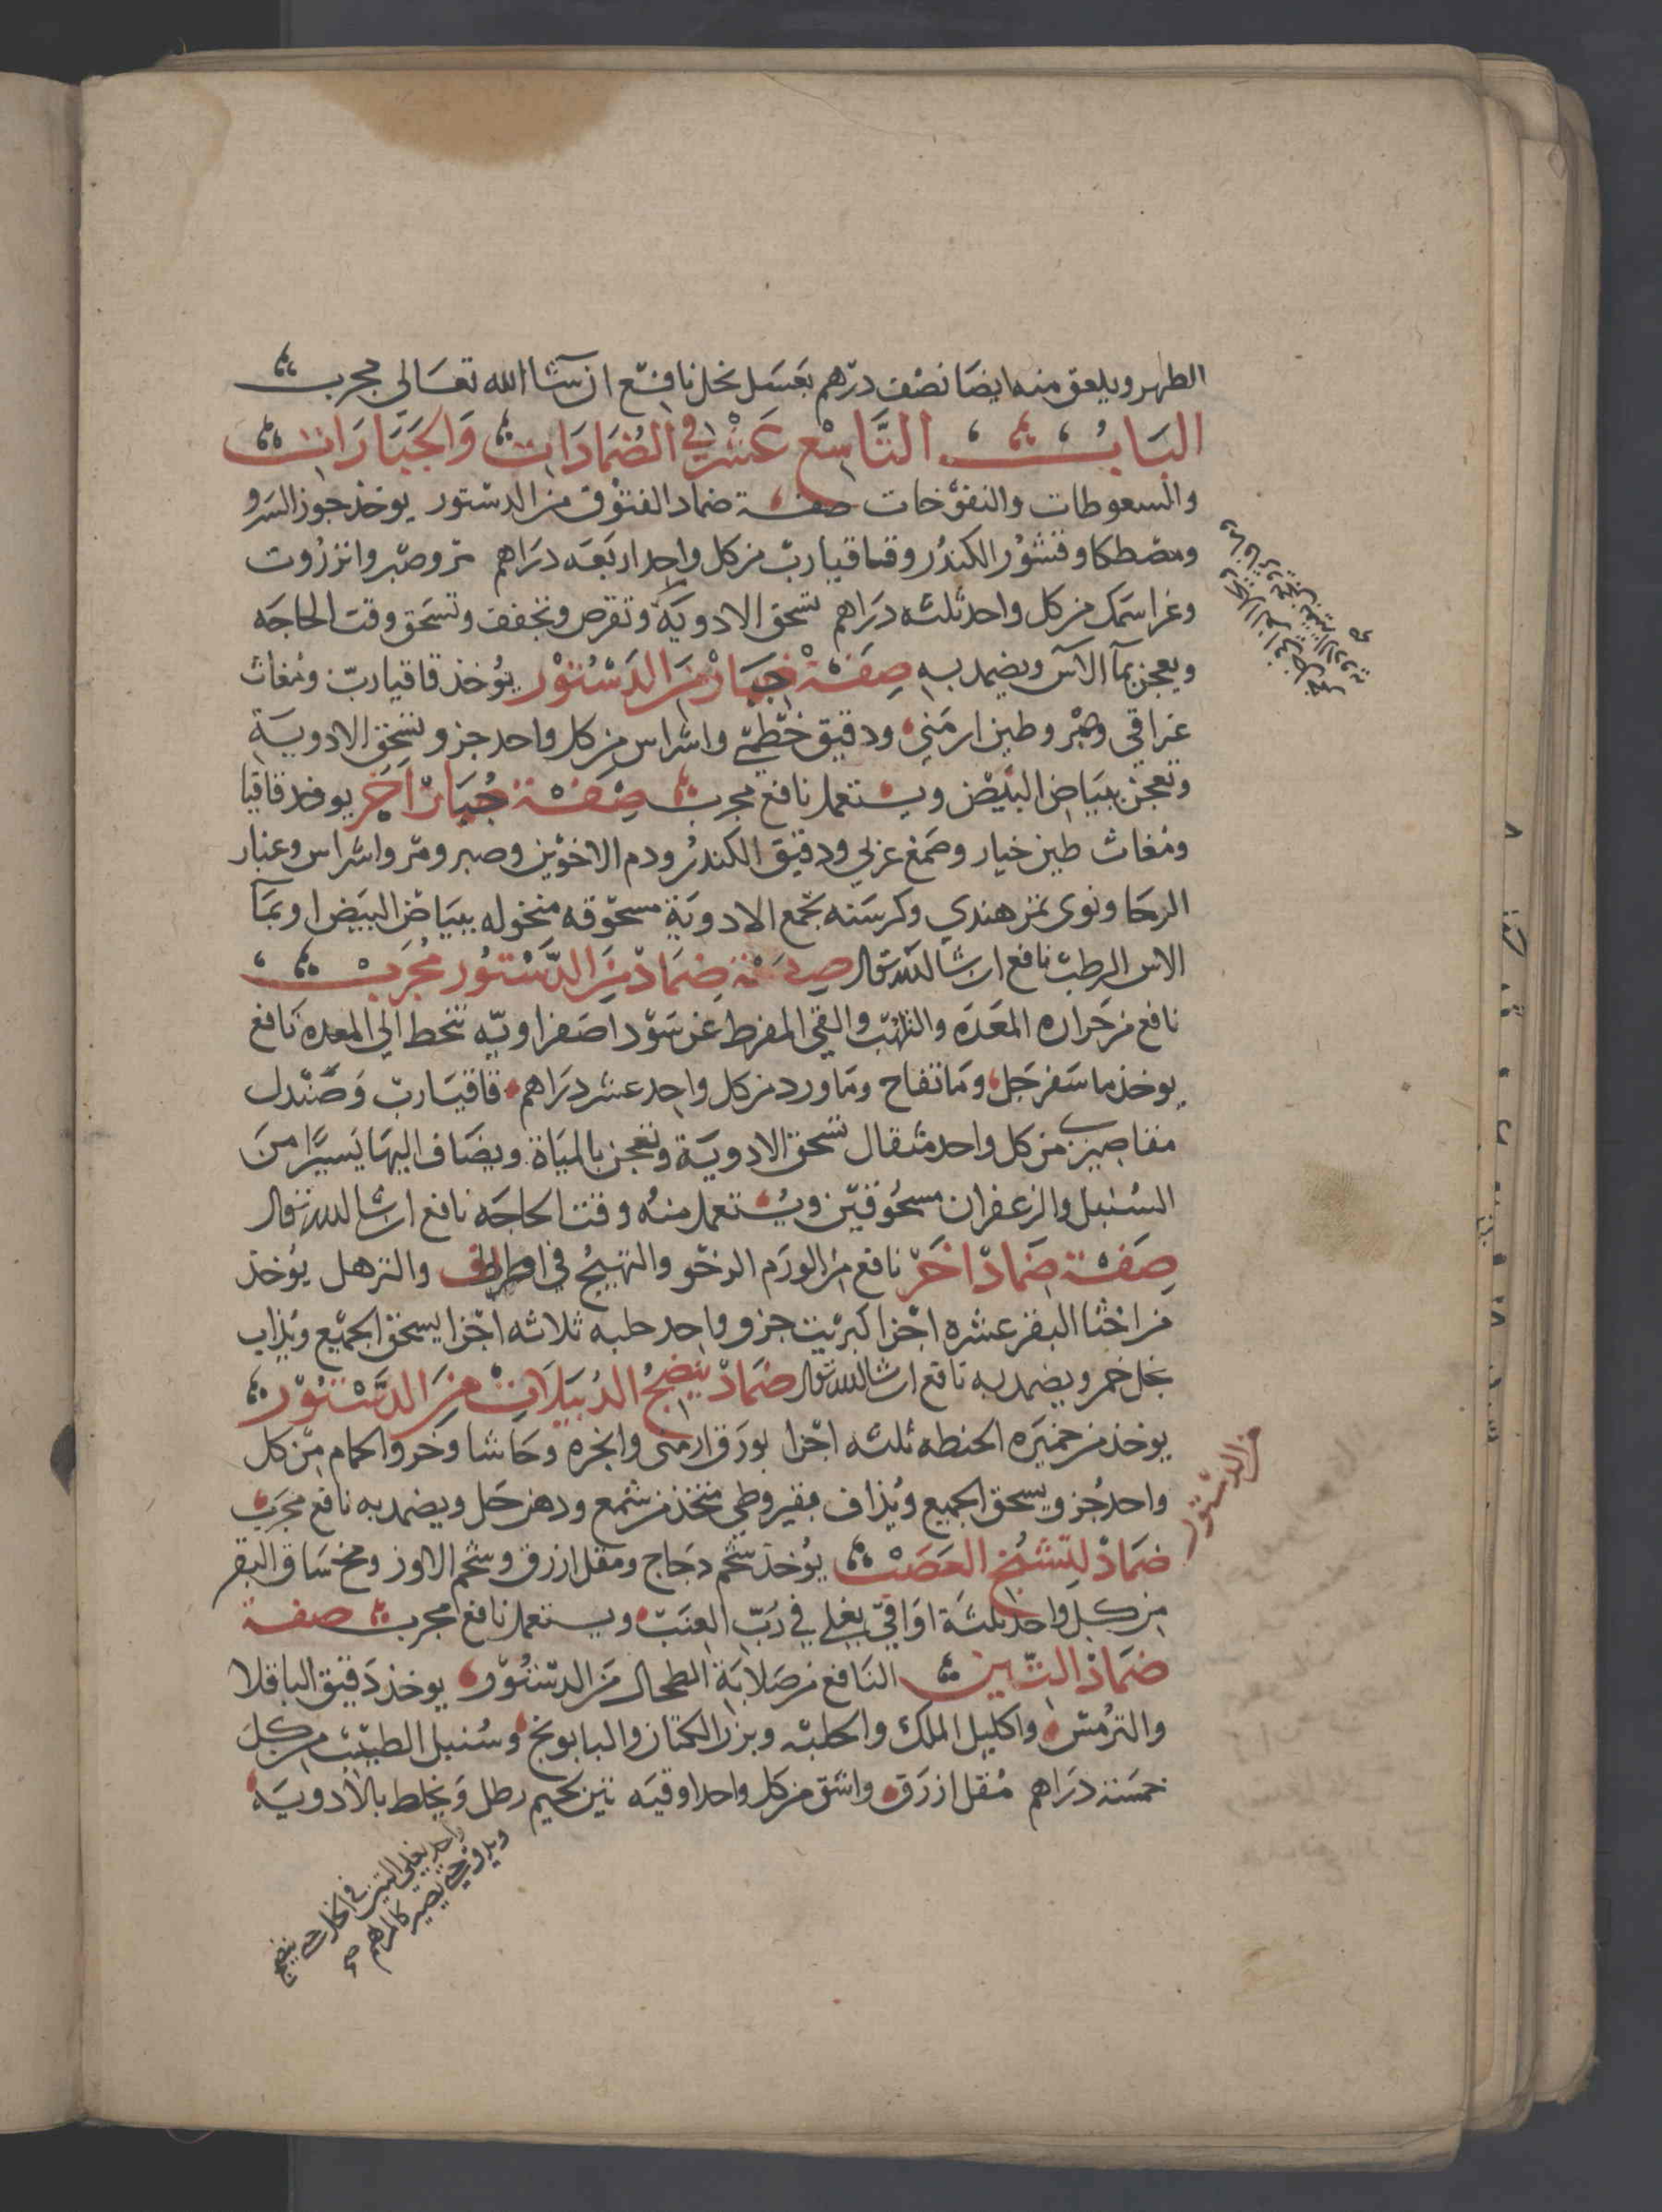 الطهر ويلعق منه ايضا نصف درهم بعسل نحل نافع ان شا الله تعالى مجرب
الباب التاسع عشر في الضمادات والجبارات
والسعوطات والنفوخات صفة ضماد الفتوق من الدستور يوخذ جوز السرو
ومصطكا وقشور الكندر وقاقيا رب من كل واحد اربعه دراهم مر وصبر وانزروت
وغرا سمك من كل واحد ثلثه دراهم تسحق الادوية وتقرص وتجفف وتسحق وقت الحاجه
ويعجن بمآ الآس ويضمد به صفة جبار من الدستور يوخذ قاقيا رب ومغاث
عراقي وصبر وطين ارمني ودقيق خطمي واشراس من كل واحد جزو تسحق الادوية
وتعجن ببياض البيض ويستعمل نافع مجرب صفة جبار آخر يوخذ قاقيا
ومغاث طين خيار وصمغ عربي ودقيق الكندر ودم الاخوين وصبر ومر واشراس وغبار
الرحا ونوى تمر هندي وكرسنه تجمع الادوية مسحوقه منخوله ببياض البيض او بمآ
الاس الرطب نافع ان شا الله تعالى صفة ضماد من الدستور مجرب
نافع من حراره المعده والتلهب والقي المفرط عن سودا صفراويه تنحط الى المعده نافع
يوخذ ما سفرجل وما تفاح وما ورد من كل واحد عشر دراهم قاقيا رب وصندل
مقاصيري من كل واحد مثقال تسحق الادوية وتعجن بالمياة ويضاف اليها يسيرا من
السنبل والزعفران مسحوقين ويستعمل منه وقت الحاجه نافع ان شا الله تعالى
صفة ضماد اخر نافع من الورم الرخو والتهيج في الاطراف والترهل يوخذ
من اخثا البقر عشره اجزا كبريت جزو واحد حلبه ثلاثه اجزا يسحق الجميع ويذاب
بخل خمر ويضمد به نافع ان شا الله تعالى ضماد ينضج الدبيلات من الدستور
يوخذ من خميره الحنطه ثلثه اجزا بورق ارمني وانجره وحاشا وخرو الحمام من كل
واحد جزو يسحق الجميع ويذاف بقيروطي متخذ من شمع ودهن حل ويضمد به نافع مجرب
ضماد لتشنج العصب يوخذ شحم دجاج ومقل ازرق وشحم الاوز ومخ ساق البقر
من الدستور
من كل واحد ثلثة اواقي يغلي في رب العنب ويستعمل نافع مجرب صفة
ضماد التين النافع من صلابة الطحال من الدستور يوخذ دقيق الباقلا
والترمس واكليل الملك والحلبه وبزر الكتان والبابونج وسنبل الطيب من كل
خمسة دراهم مقل ازرق واشق من كل واحد اوقيه تين لحيم رطل ويخلط بالادوية
واحد يغلي التين في الخل حتى ينضج
ويدق حتى يصير كالمرهم صح